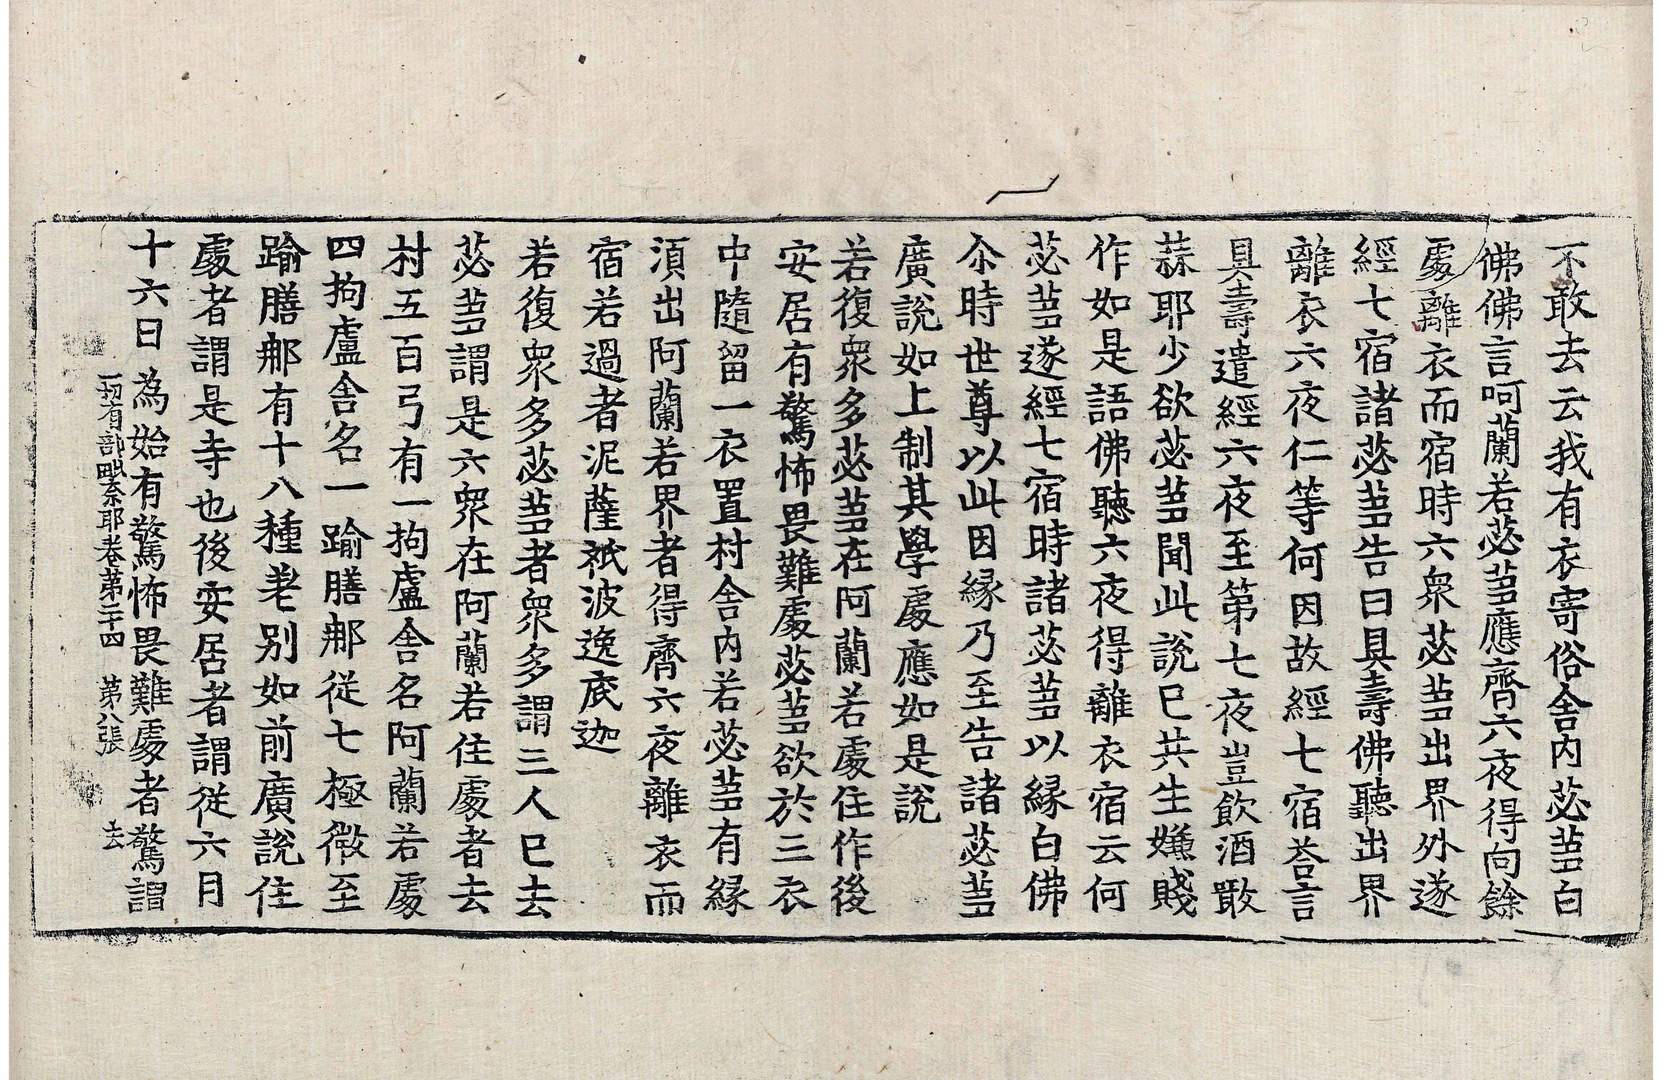 不敢去云我有衣寄俗舍內苾芻白
佛佛言呵蘭若苾芻應齊六夜得向餘
處離衣而宿時六衆苾芻出界外遂
經七宿諸苾芻告曰具壽佛聽出界
離衣六夜仁等何因故經七宿荅言
具壽遣經六夜至第七夜豈飲酒噉
蒜耶少欲苾芻聞此說已共生嫌賤
作如是語佛聽六夜得離衣宿云何
苾芻遂經七宿時諸苾芻以縁白佛
尒時世尊以此因縁乃至告諸苾芻
廣說如上制其學處應如是說
若復衆多苾芻在阿蘭若處住作後
安居有驚怖畏難處苾芻欲於三衣
中隨留一衣置村舍內若苾芻有縁
湏出阿蘭若界者得齊六夜離衣而
宿若過者泥薩衹波逸底迦
若復衆多苾芻者衆多謂三人已去
苾芻謂是六衆在阿蘭若住處者去
村五百弓有一拘盧舍名阿蘭若處
四拘盧舍名一踰膳那從七極微至
踰膳那有十八種差别如前廣說住
處者謂是寺也後安居者謂從六月
十六日為始有驚怖畏難處者驚謂
一切有部毗柰耶卷第二十四　第八張　去